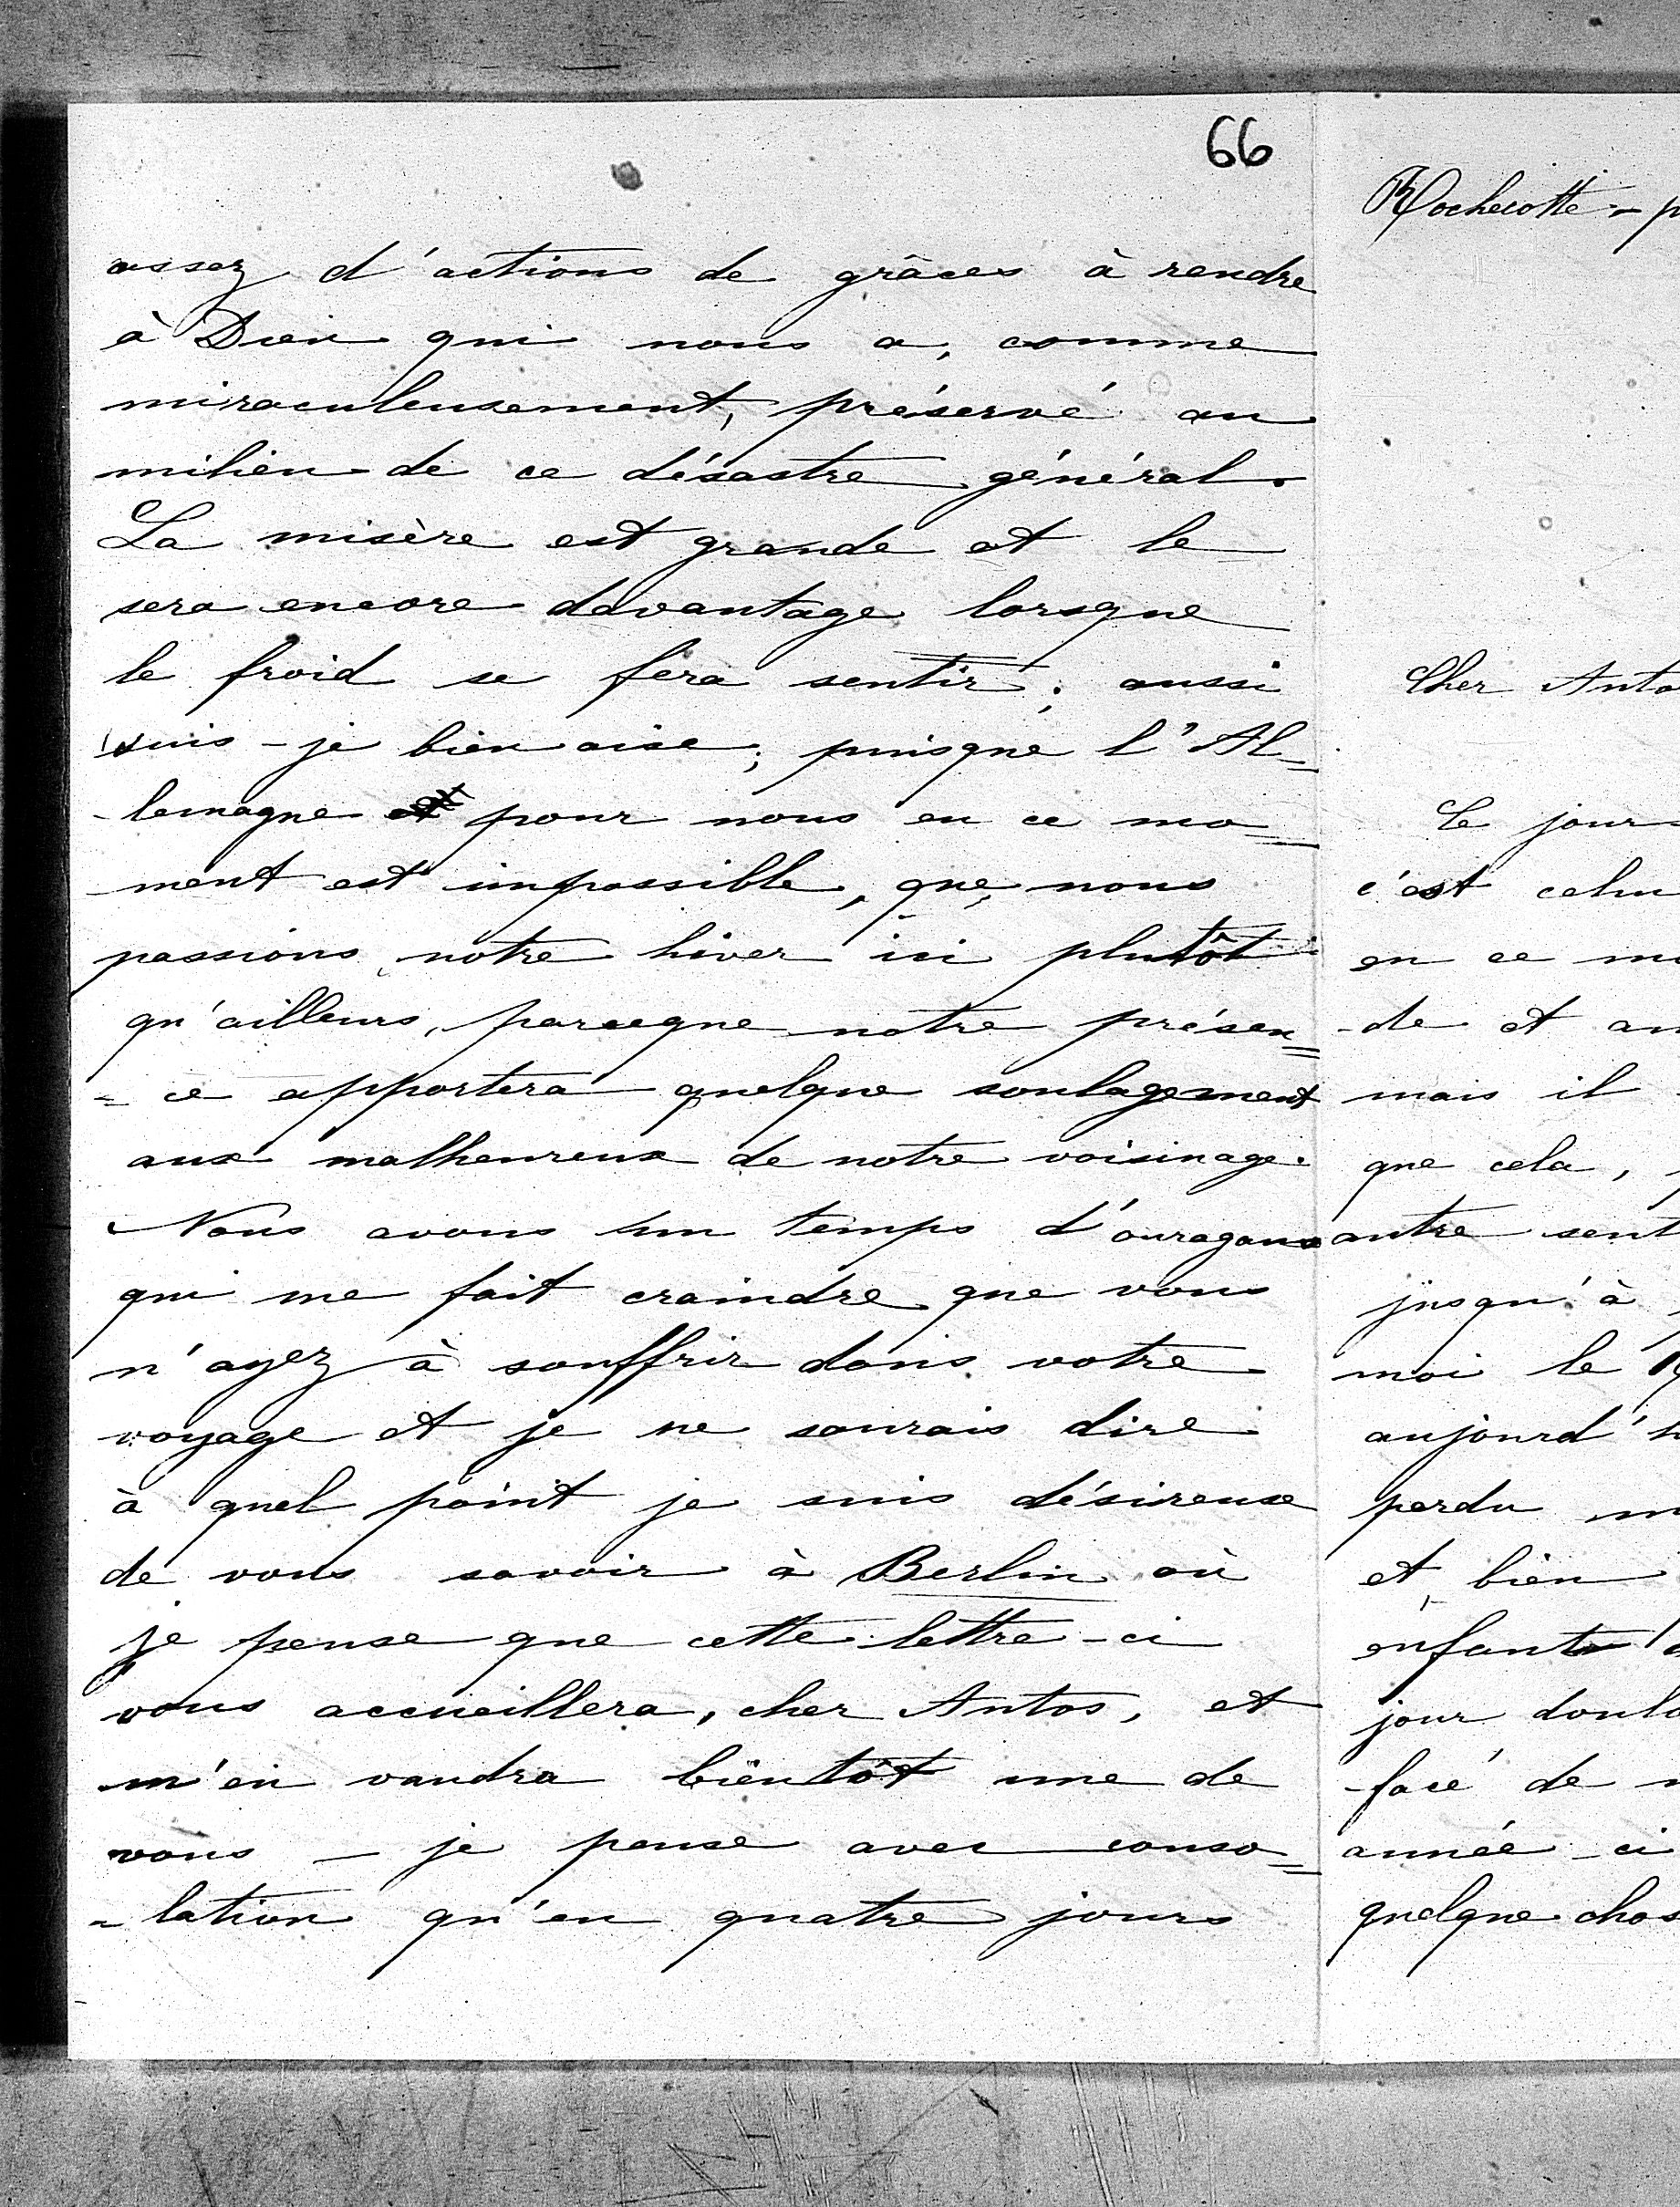 66
assez d'actions de grâces à rendre
à Dieu qui nous a, comme
miraculeusement, préservé au
milieu de ce désastre général.
La misère est grande et le
sera encore davantage lorsque
le froid se fera sentir; aussi
suis-je bien aise; puisque l'Al=
-lemagne pour nous en ce mo=
-ment est impossible, que nous
passions notre hiver ici plutôt
qu'ailleurs, parceque notre présen=
=ce apportera quelque soulagement
aux malheureux de notre voisinage.
Nous avons un temps d'ouragans
qui me fait craindre que vous
n'ayez à souffrir dans votre
voyage et je ne saurais dire
à quel point je suis désireuse
de vous savoir à Berlin où
je pense que cette lettre-ci
vous accueillera, cher Antos, et
m'en vaudra bientôt une de
vous – je pense avec conso=
=lation qu'en quatre jours
Rochecotte - p
Cher Anto
Le jour
c'est celui
en ce mo
-de et au
mais il
que cela,
autre sent
jusqu'à
moi le 19
aujourd'h
perdu m
et, bien
enfants
jour doulo
-facé de
année-ci
quelque chos